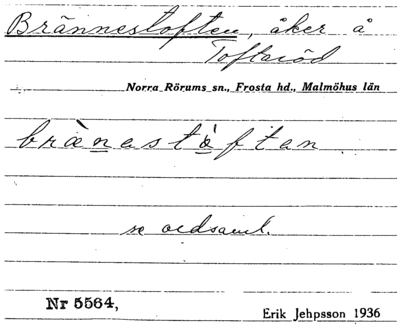 Brännestoften, åker å
Toftaröd
Norra Rörums sn., Frosta hd., Malmöhus län
brànastàftan
se ordsaml.
Nr 5564,
Erik Jehpsson 1936